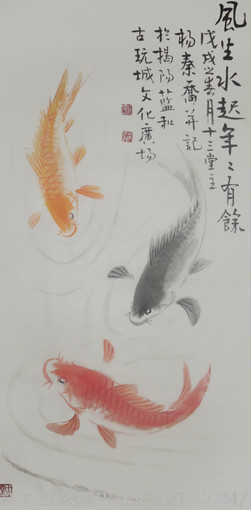 風生水起年々有餘
戊戌之春月十三堂主
杨秦喬并記
於揭阳蓝和
古玩城文化廣场